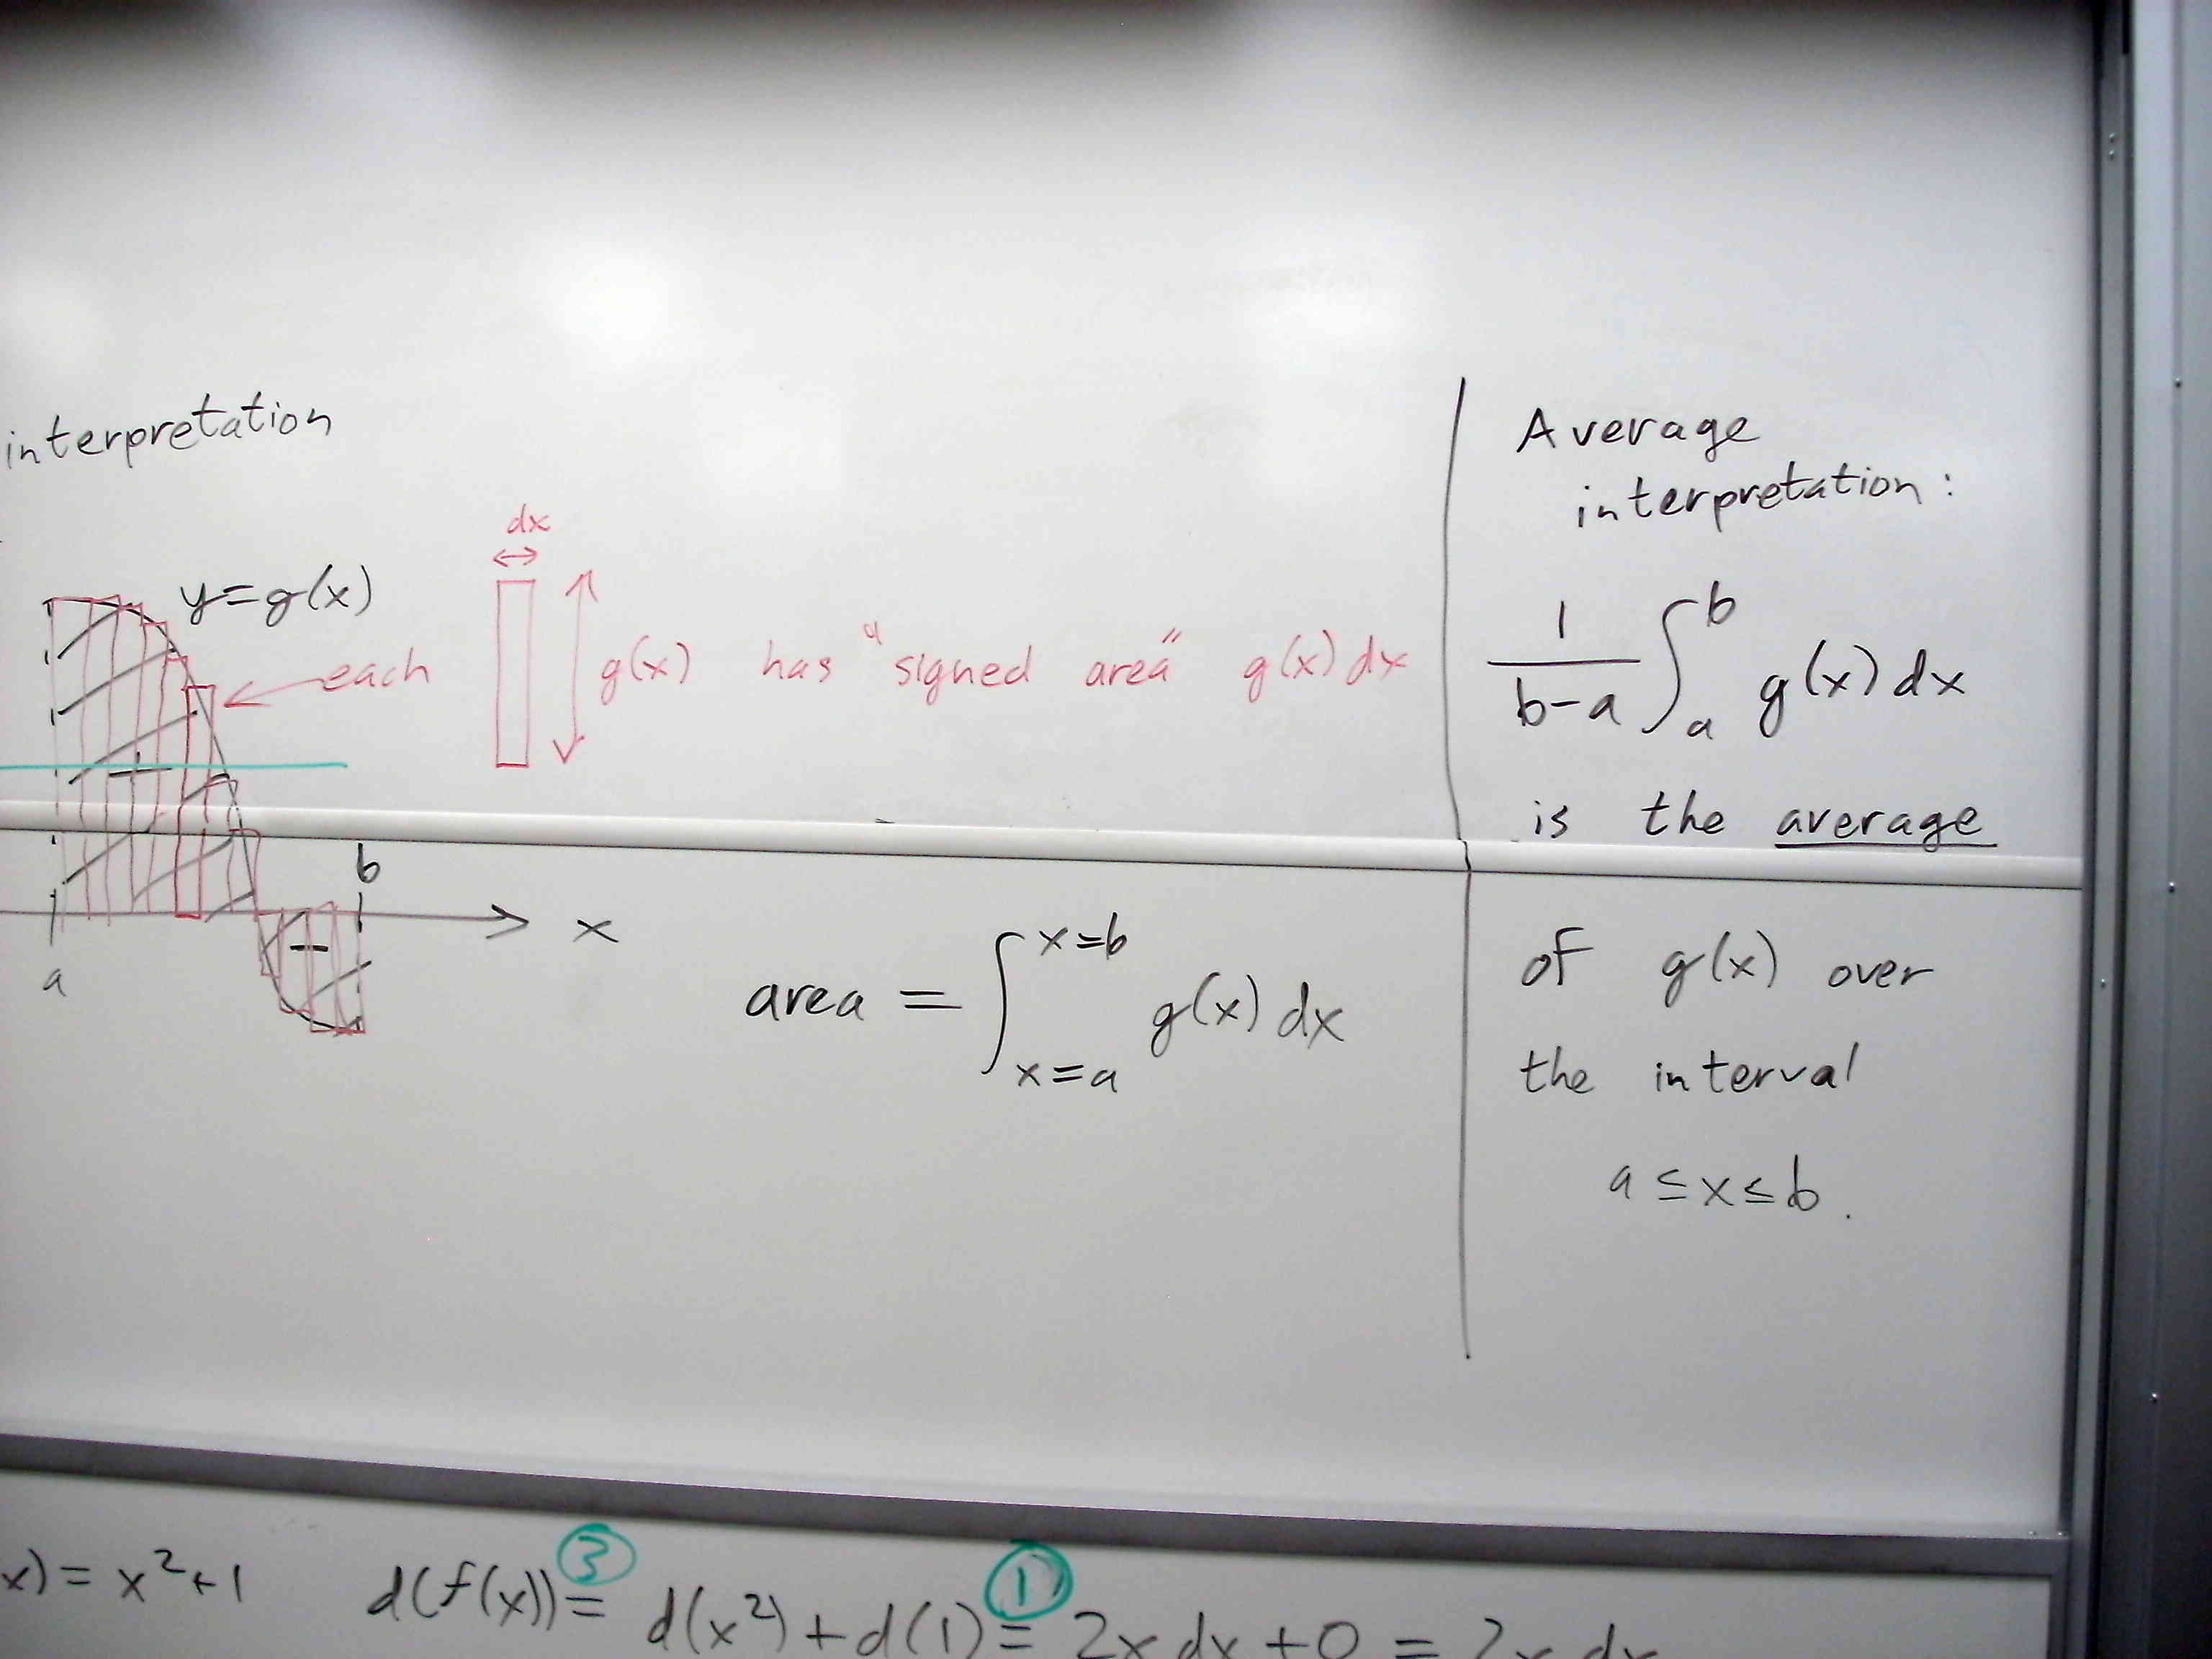 interpretation
y=g(x)
each
dx
g(x) has "signed area" g(x) dx
+
b
a
−
x
area = ∫_{x=a}^{x=b} g(x) dx
Average
interpretation:
1/(b-a) ∫_a^b g(x) dx
is the average
of g(x) over
the interval
a ≤ x ≤ b.
x) = x²+1 d(f(x)) =③ d(x²) + d(1) =① 2x dx + 0 = 2x dx